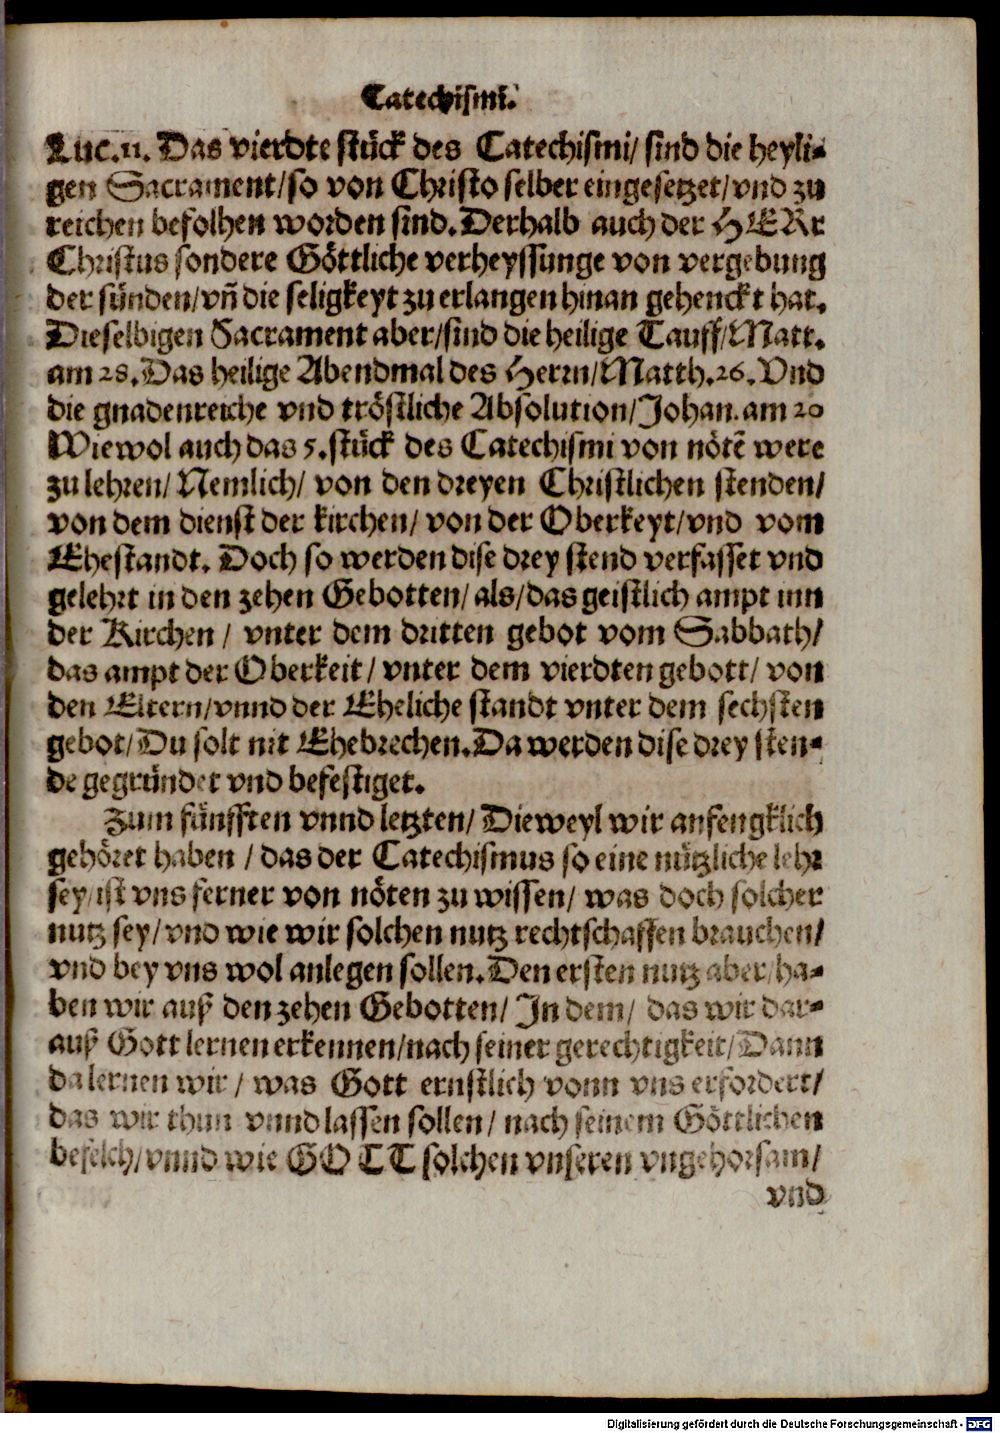 Catechismi.
Luc. 11. Das vierdte stück des Catechismi/ sind die heyli-
gen Sacrament/ so von Christo selber eingesetzet/ vnd zu
reichen befolhen worden sind. Derhalb auch der HERr
Christus sondere Göttliche verheyssunge von vergebung
der sünden/ vñ die seligkeyt zu erlangen hinan gehenckt hat.
Dieselbigen Sacrament aber/ sind die heilige Tauff/ Matt.
am 28. Das heilige Abendmal des Herrn/ Matth. 26. Vnd
die gnadenreiche vnd tröstliche Absolution/ Johan. am 20
Wiewol auch das 5. stück des Catechismi von nötē were
zu lehren/ Nemlich/ von den dreyen Christlichen stenden/
von dem dienst der kirchen/ von der Oberkeyt/ vnd vom
Ehestandt. Doch so werden dise drey stend verfasset vnd
gelehrt in den zehen Gebotten/ als/ das geistlich ampt inn
der Kirchen/ vnter dem dritten gebot vom Sabbath/
das ampt der Oberkeit/ vnter dem vierdten gebott/ von
den Eltern/ vnnd der Eheliche standt vnter dem sechsten
gebot/ Du solt nit Ehebrechen. Da werden dise drey sten-
de gegründet vnd befestiget.
Zum fünfften vnnd letzten/ Dieweyl wir anfengklich
gehöret haben/ das der Catechismus so eine nützliche lehr
sey/ ist vns ferner von nöten zu wissen/ was doch solcher
nutz sey/ vnd wie wir solchen nutz rechtschaffen brauchen/
vnd bey vns wol anlegen sollen. Den ersten nutz aber/ ha-
ben wir auß den zehen Gebotten/ In dem/ das wir dar-
auß Gott lernen erkennen/ nach seiner gerechtigkeit/ Dann
da lernen wir/ was Gott ernstlich vonn vns erfordert/
das wir thun vnnd lassen sollen/ nach seinem Göttlichen
befelch/ vnnd wie GOTT solchen vnseren vngehorsam/
vnd
Digitalisierung gefördert durch die Deutsche Forschungsgemeinschaft - DFG